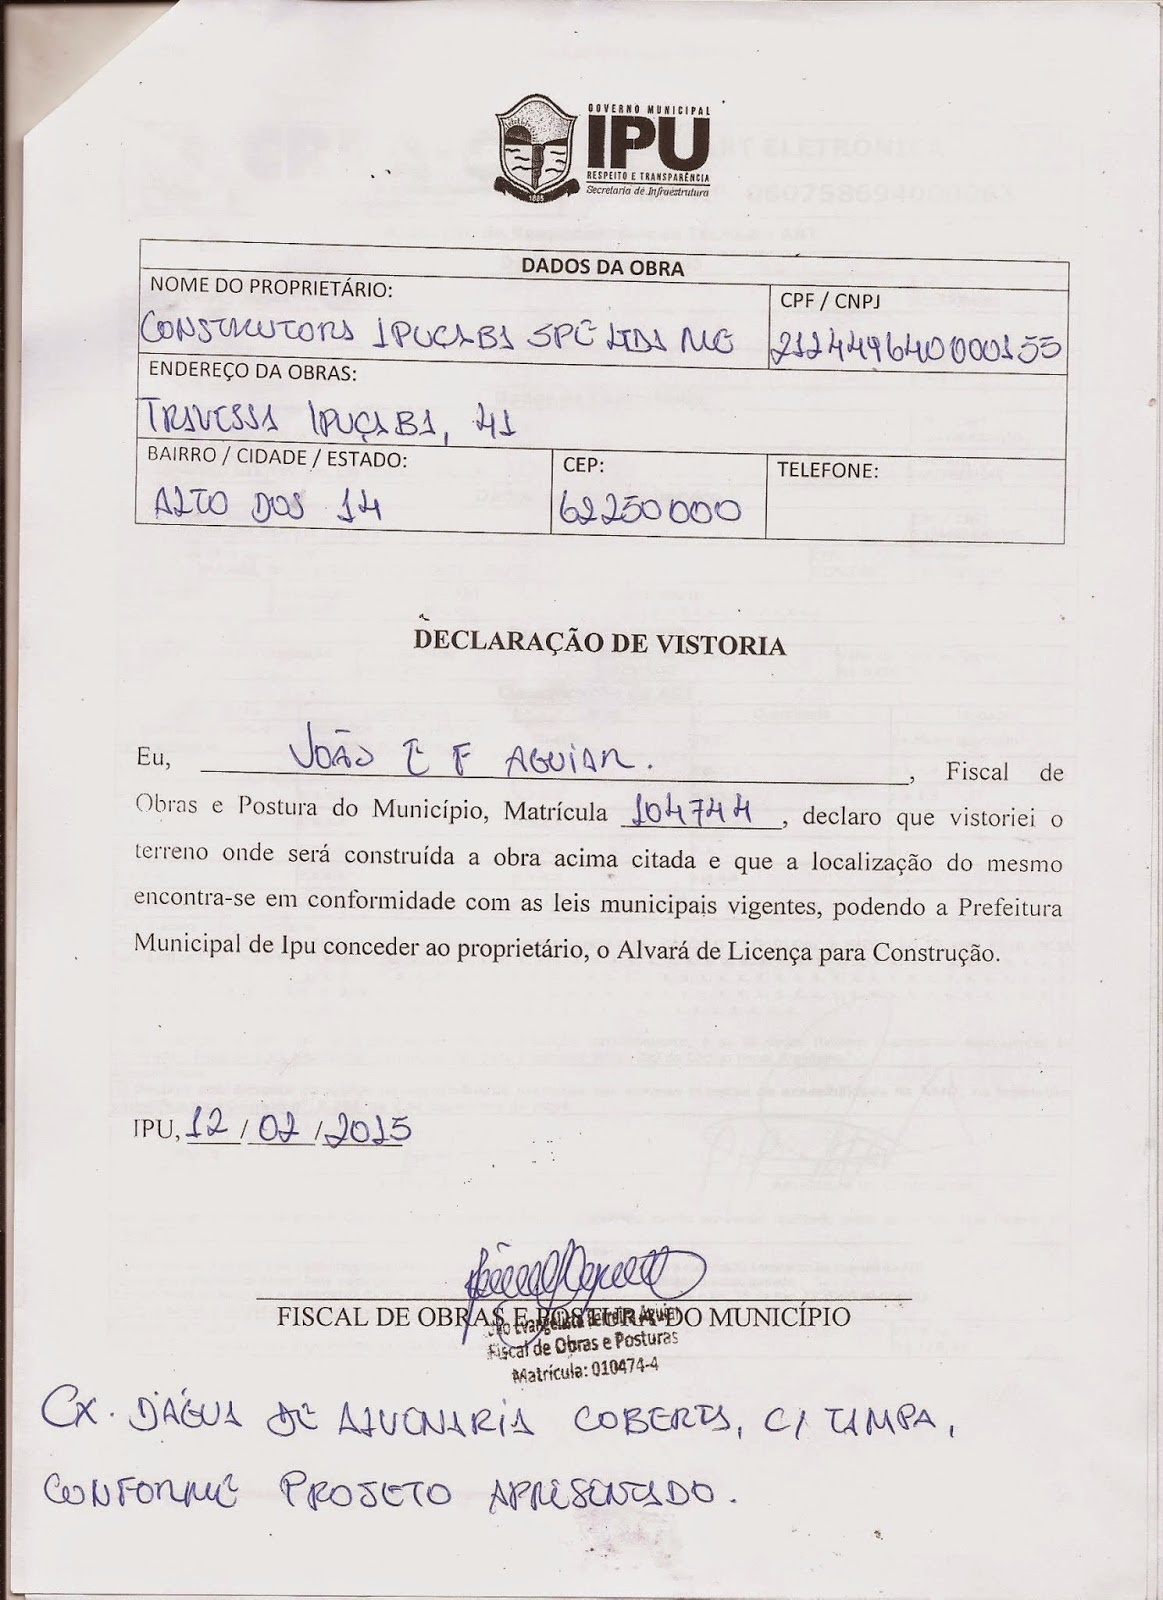 GOVERNO MUNICIPAL
IPU
RESPEITO E TRANSPARÊNCIA
Secretaria de Infraestrutura
1885
DADOS DA OBRA
NOME DO PROPRIETÁRIO:
CONSTRUTORA IPUÇABA SPE LTDA ME
CPF / CNPJ
212449640000155
ENDEREÇO DA OBRAS:
TRAVESSA IPUÇABA, 41
BAIRRO / CIDADE / ESTADO:
ALTO DOS 14
CEP:
62250000
TELEFONE:
DECLARAÇÃO DE VISTORIA
Eu, JOÃO E F AGUIAR. , Fiscal de
Obras e Postura do Município, Matrícula 104744, declaro que vistoriei o
terreno onde será construída a obra acima citada e que a localização do mesmo
encontra-se em conformidade com as leis municipais vigentes, podendo a Prefeitura
Municipal de Ipu conceder ao proprietário, o Alvará de Licença para Construção.
IPU, 12 / 02 / 2015
FISCAL DE OBRAS E POSTURA DO MUNICÍPIO
João Evangelista Ferreira Aguiar
Fiscal de Obras e Posturas
Matrícula: 010474-4
CX. D'ÁGUA DE ALVENARIA COBERTA, C/ TAMPA,
CONFORME PROJETO APRESENTADO.